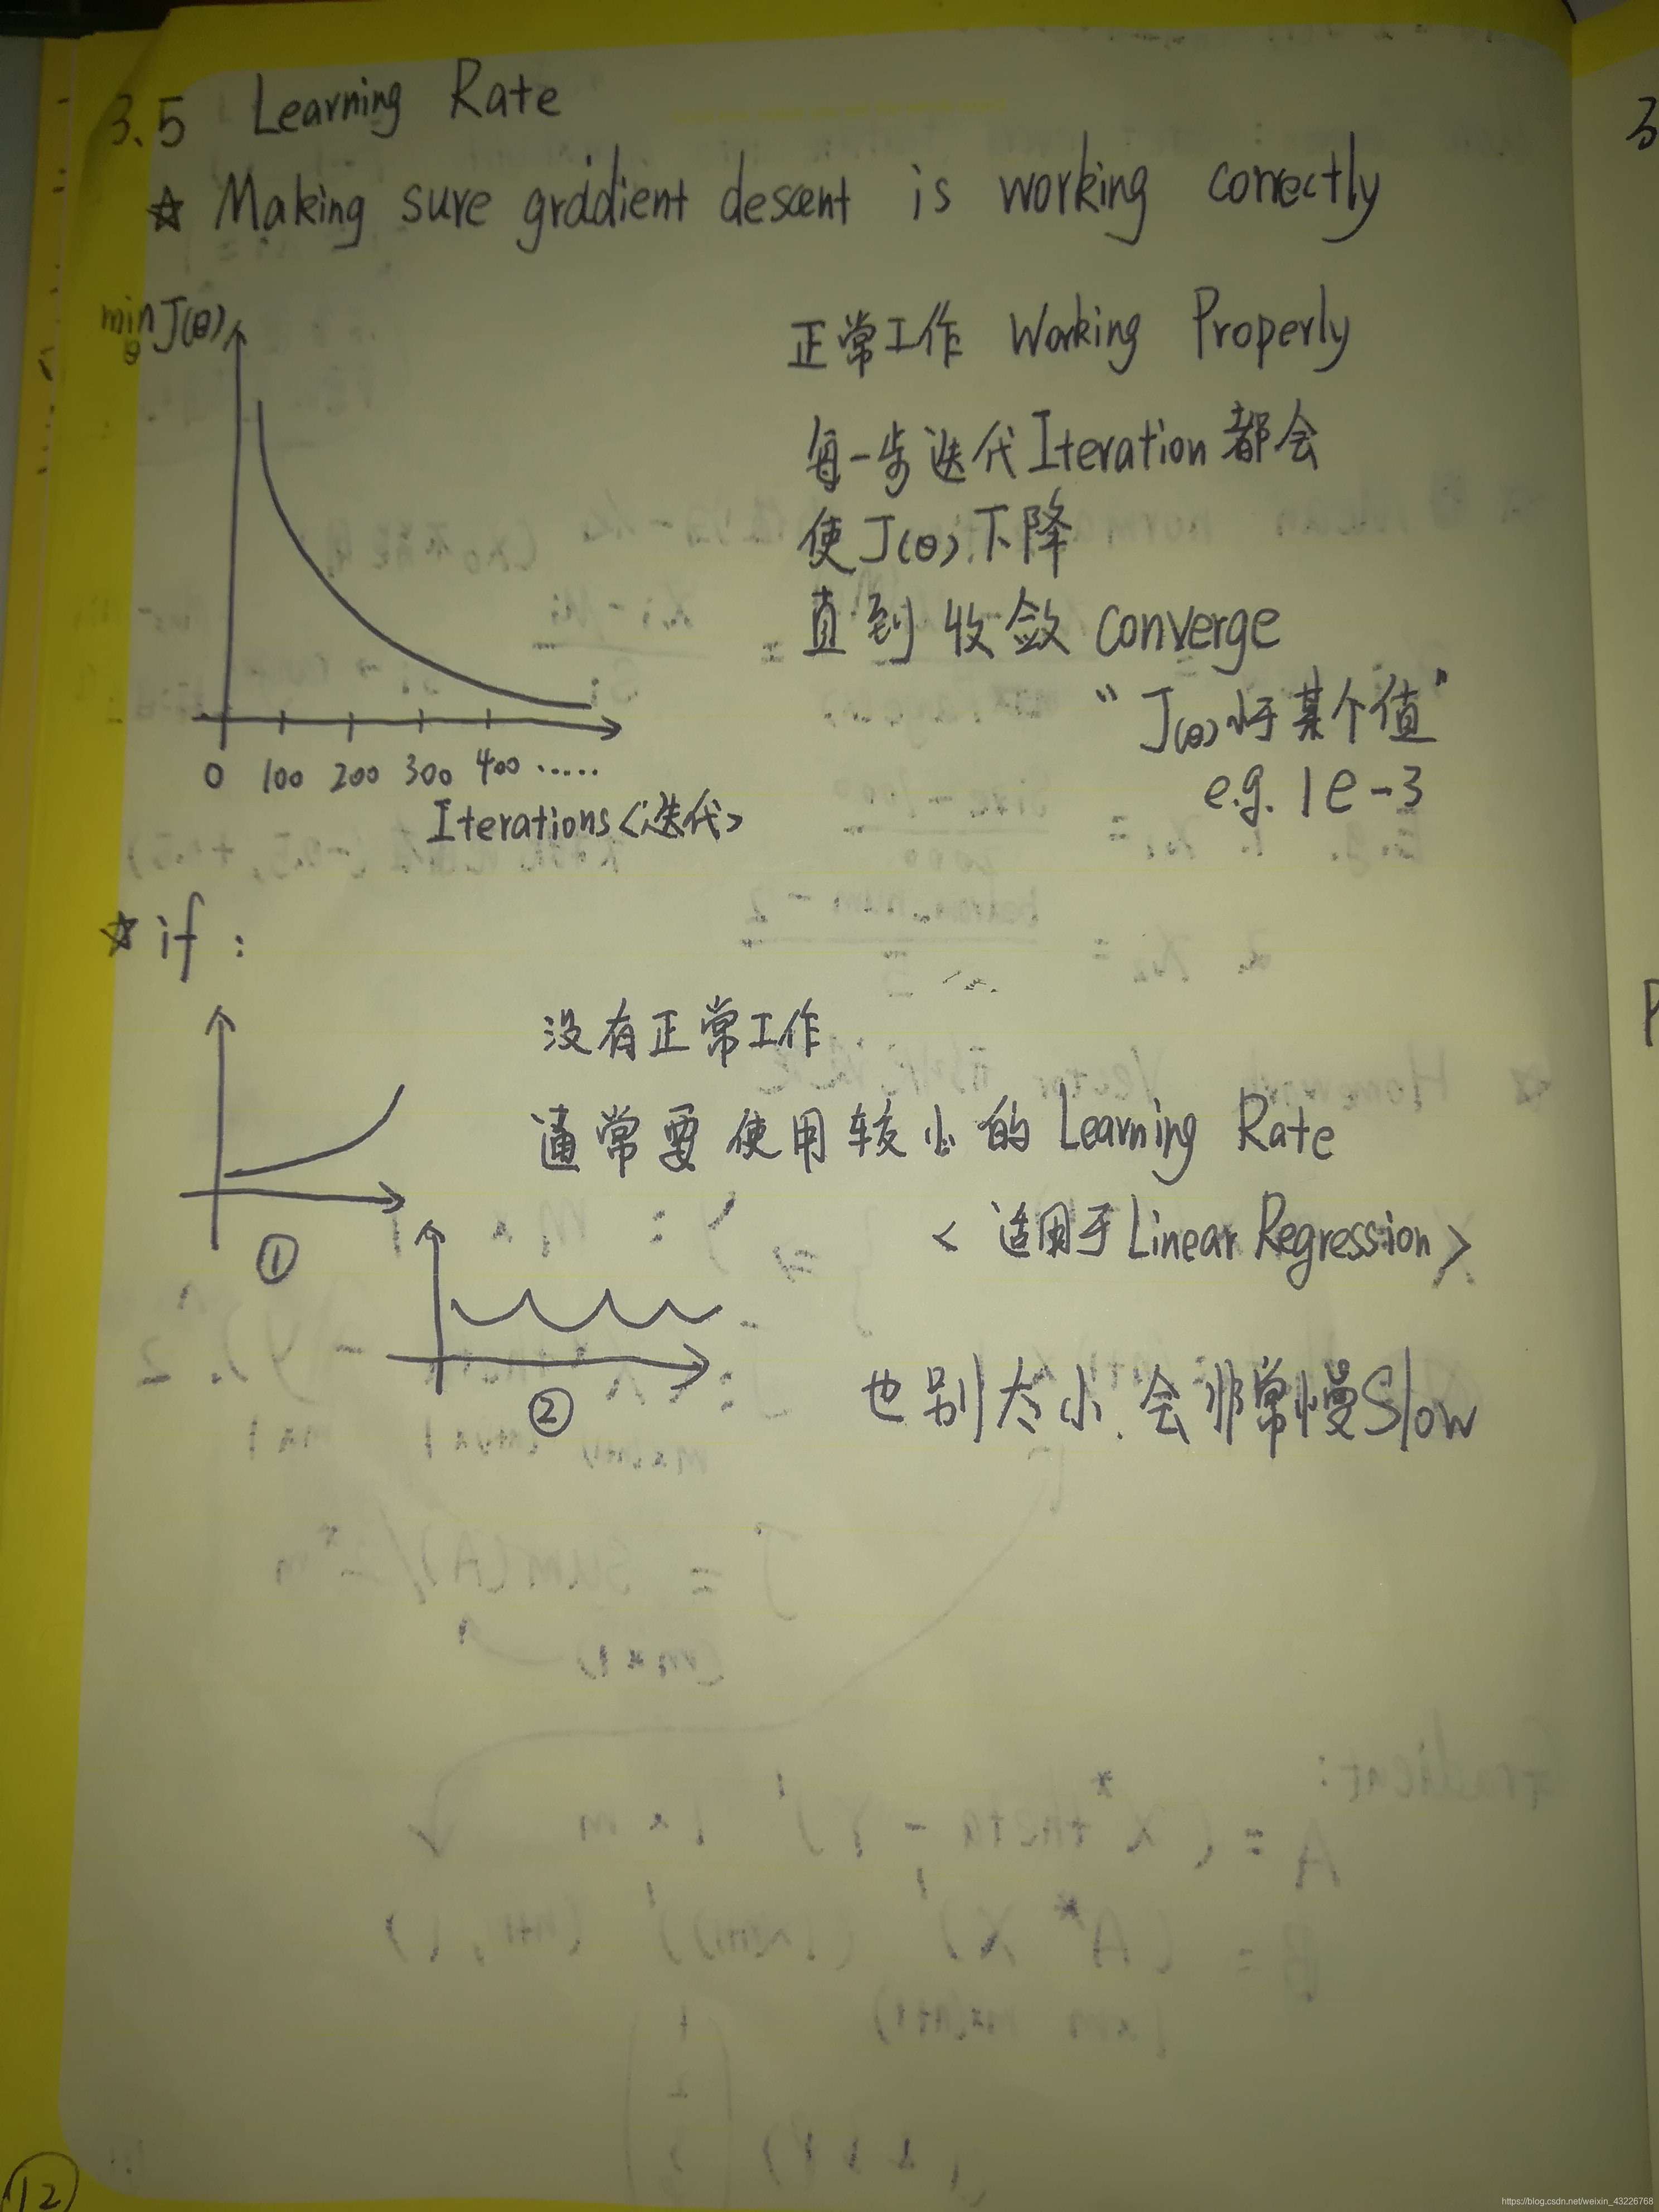 3.5 Learning Rate
☆ Making sure graddient descent is working correctly
min J(θ)
θ
正常工作 Working Properly
每一步迭代 Iteration 都会
使 J(θ) 下降
直到 收敛 converge
“J(θ) 小于某个值”
e.g. 1e-3
0 100 200 300 400 ......
Iterations<迭代>
☆ if :
没有正常工作
通常要使用较小的 Learning Rate
< 适用于 Linear Regression >
①
②
也别太小. 会非常慢 Slow
12
https://blog.csdn.net/weixin_43226768